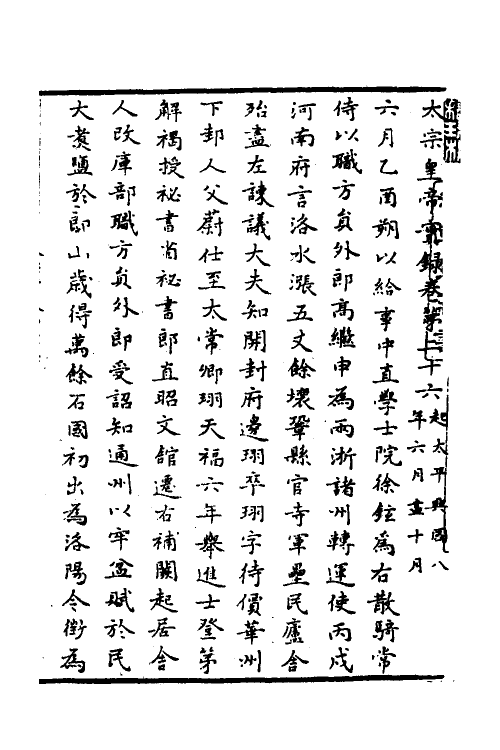 太宗皇帝實録卷第二十六起太平興國八年六月盡十月
六月乙酉朔以給事中直學士院徐鉉為右散騎常
侍以職方員外郎高繼申為兩浙諸州轉運使丙戌
河南府言洛水漲五丈餘壞鞏縣官寺軍壘民廬舍
殆盡左諫議大夫知開封府邊珝卒珝字待價華州
下邽人父蔚仕至太常卿珝天福六年舉進士登第
解褐授祕書省祕書郎直昭文館遷右補闕起居舍
人改庫部職方員外郎受詔知通州以牢盆賦於民
大煑鹽於郎山歲得萬餘石國初出為洛陽令徵為